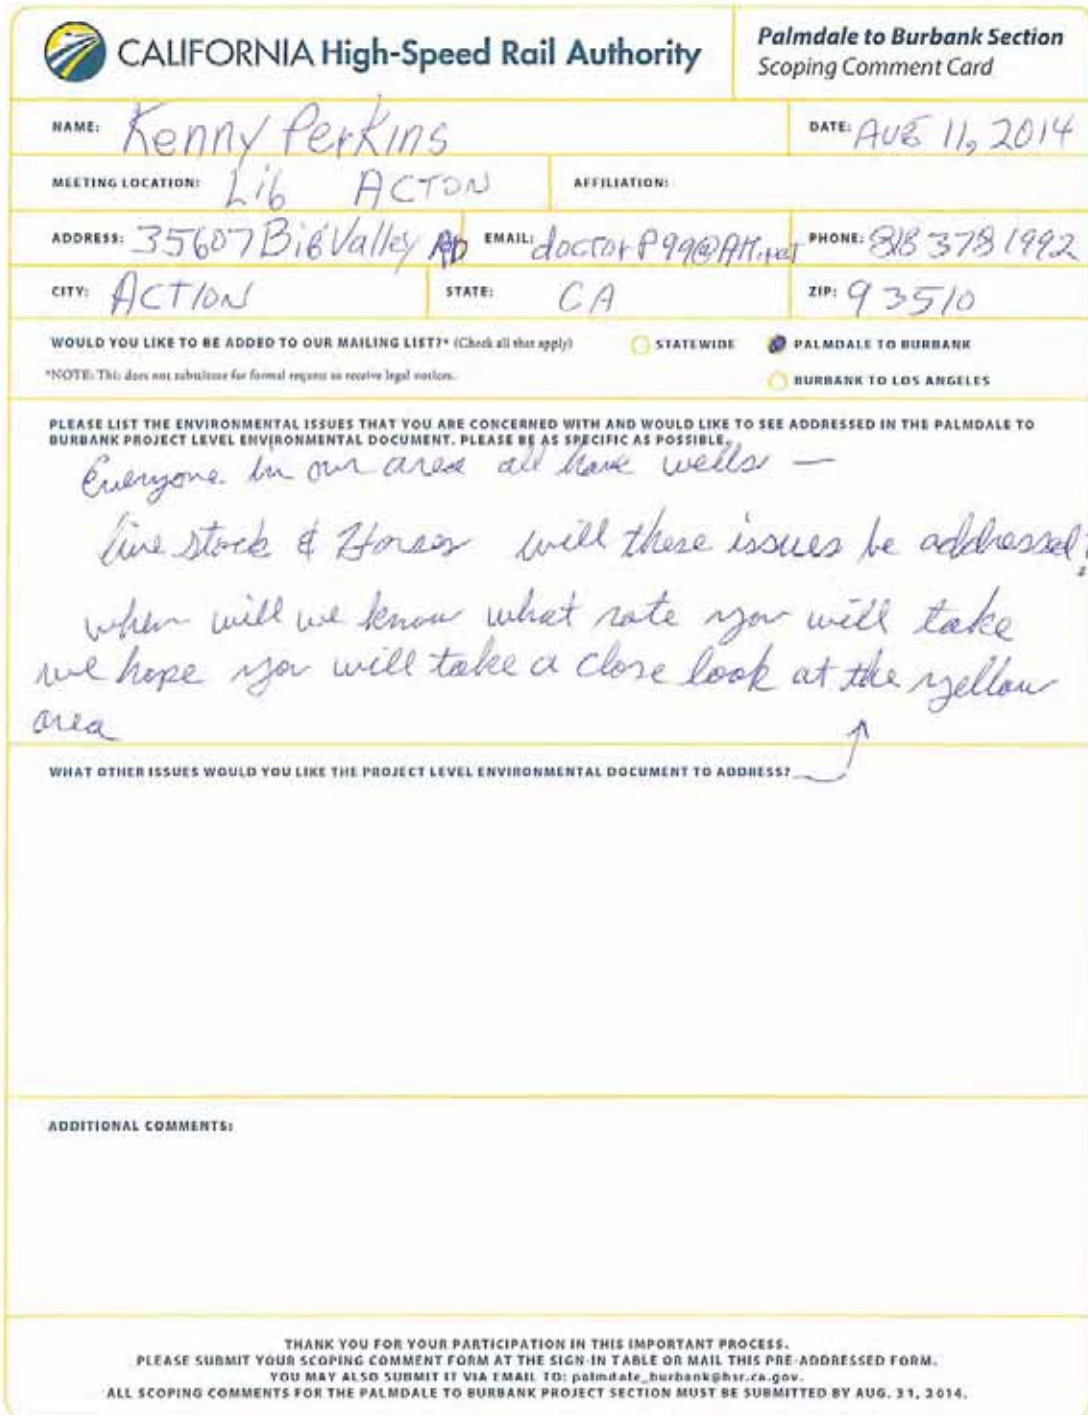 CALIFORNIA High-Speed Rail Authority
Palmdale to Burbank Section
Scoping Comment Card
NAME: Kenny Perkins
DATE: AUG 11, 2014
MEETING LOCATION: Lib ACTON
AFFILIATION:
ADDRESS: 35607 Big Valley RD
EMAIL: doctorP99@Att.net
PHONE: 818 378 1992
CITY: ACTION
STATE: CA
ZIP: 93510
WOULD YOU LIKE TO BE ADDED TO OUR MAILING LIST?* (Check all that apply)
STATEWIDE
PALMDALE TO BURBANK
*NOTE: This does not substitute for formal request to receive legal notices.
BURBANK TO LOS ANGELES
PLEASE LIST THE ENVIRONMENTAL ISSUES THAT YOU ARE CONCERNED WITH AND WOULD LIKE TO SEE ADDRESSED IN THE PALMDALE TO
BURBANK PROJECT LEVEL ENVIRONMENTAL DOCUMENT. PLEASE BE AS SPECIFIC AS POSSIBLE.
Everyone in our area all have wells —
live stock & Horses will these issues be addressed?
when will we know what rate you will take
we hope you will take a close look at the yellow
area
WHAT OTHER ISSUES WOULD YOU LIKE THE PROJECT LEVEL ENVIRONMENTAL DOCUMENT TO ADDRESS?
ADDITIONAL COMMENTS:
THANK YOU FOR YOUR PARTICIPATION IN THIS IMPORTANT PROCESS.
PLEASE SUBMIT YOUR SCOPING COMMENT FORM AT THE SIGN-IN TABLE OR MAIL THIS PRE-ADDRESSED FORM.
YOU MAY ALSO SUBMIT IT VIA EMAIL TO: palmdale_burbank@hsr.ca.gov.
ALL SCOPING COMMENTS FOR THE PALMDALE TO BURBANK PROJECT SECTION MUST BE SUBMITTED BY AUG. 31, 2014.